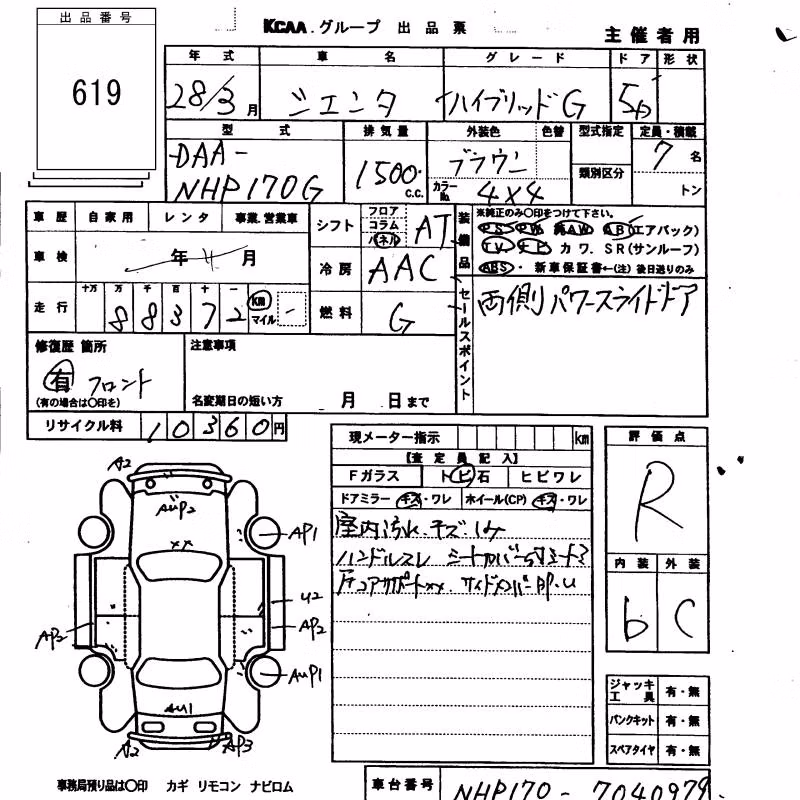 出品番号
619
KCAA.グループ 出品票
主催者用
年式 車名 グレード ドア 形状
28/3月 シエンタ ハイブリッドG 5D
型式 排気量 外装色 色替 型式指定 定員・積載
DAA-
NHP170G
1500 C.C.
ブラウン
カラーNo. 4X4
類別区分
7名
トン
車歴 自家用 レンタ 事業.営業車
車検 年 月
走行 十万 万 千 百 十 一
88372
km
マイル
シフト フロア コラム パネル AT
冷房 AAC
燃料 G
装備品
※純正のみ○印をつけて下さい。
PS PW 純AW AB(エアバック)
TV. ナビ カワ. SR(サンルーフ)
ABS・ 新車保証書←(注)後日送りのみ
セールスポイント
両側パワースライドドア
修復歴 箇所
有 フロント
(有の場合は○印を)
注意事項
名変期日の短い方 月 日まで
リサイクル料 10360円
現メーター指示 km
【査定員記入】
Fガラス トビ石 ヒビワレ
ドアミラー キズ・ワレ ホイール(CP) キズ・ワレ
室内汚れ.キズ.
ハンドルスレ
コアサポートxx.
評価点
R
内装 外装
b C
ジャッキ工具 有・無
パンクキット 有・無
スペアタイヤ 有・無
A2
AUP2
xx
AP1
U2
AP2
AP2
AUP1
AU1
A2
AP3
事務局預り品は○印 カギ リモコン ナビロム
車台番号 NHP170-7040979